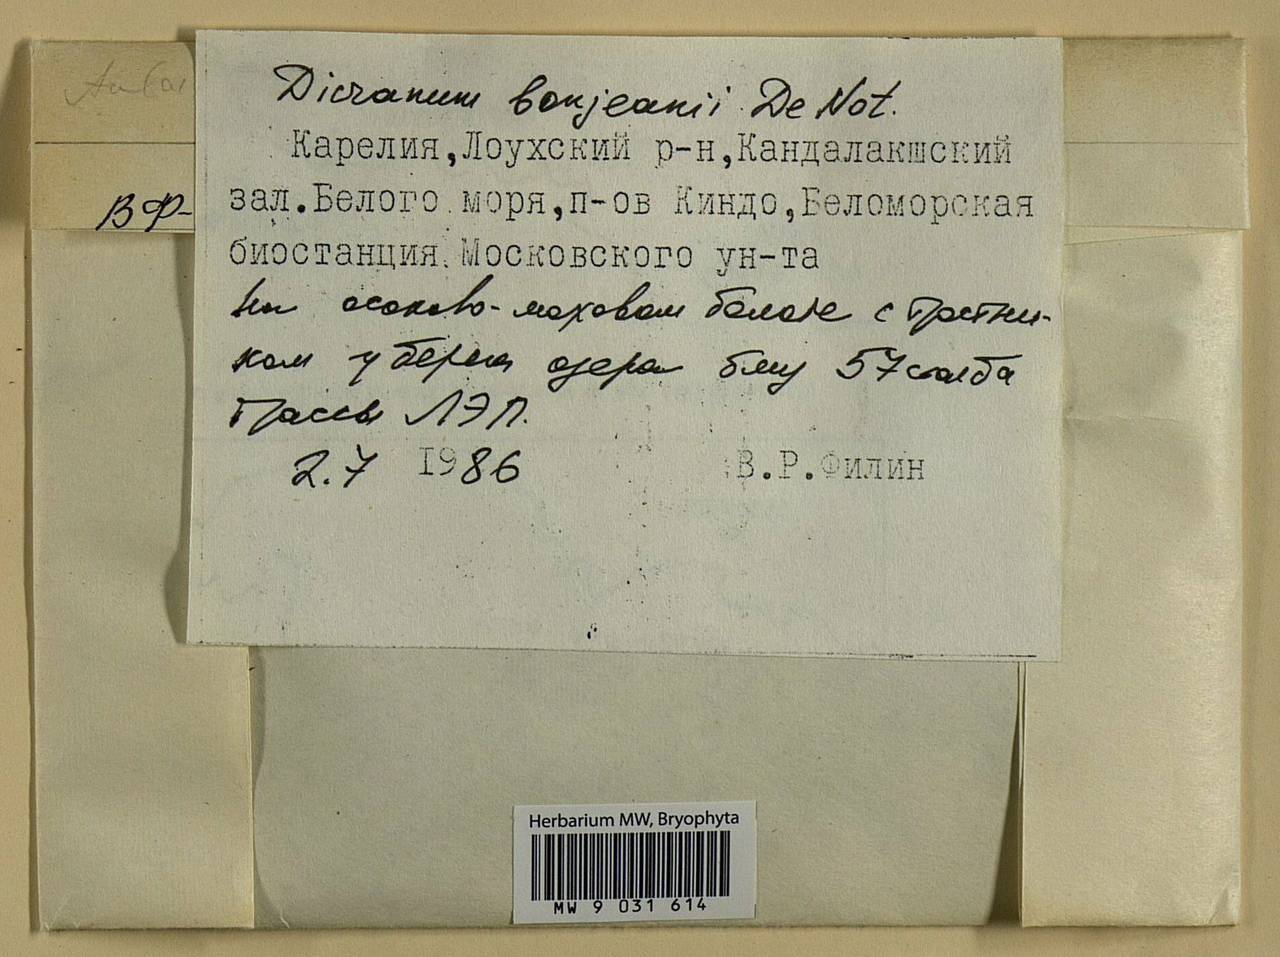 Dicranum bonjeanii De Not.
Карелия,Лоухский р-н,Кандалакшский
зал.Белого моря,п-ов Киндо,Беломорская
биостанция Московского ун-та
На осоково-моховом болоте с тростни-
ком у берега озера близ 57 столба
трассы ЛЭП.
2.7 1986 В.Р.Филин
ВФ-
Herbarium MW, Bryophyta
MW 9 031 614